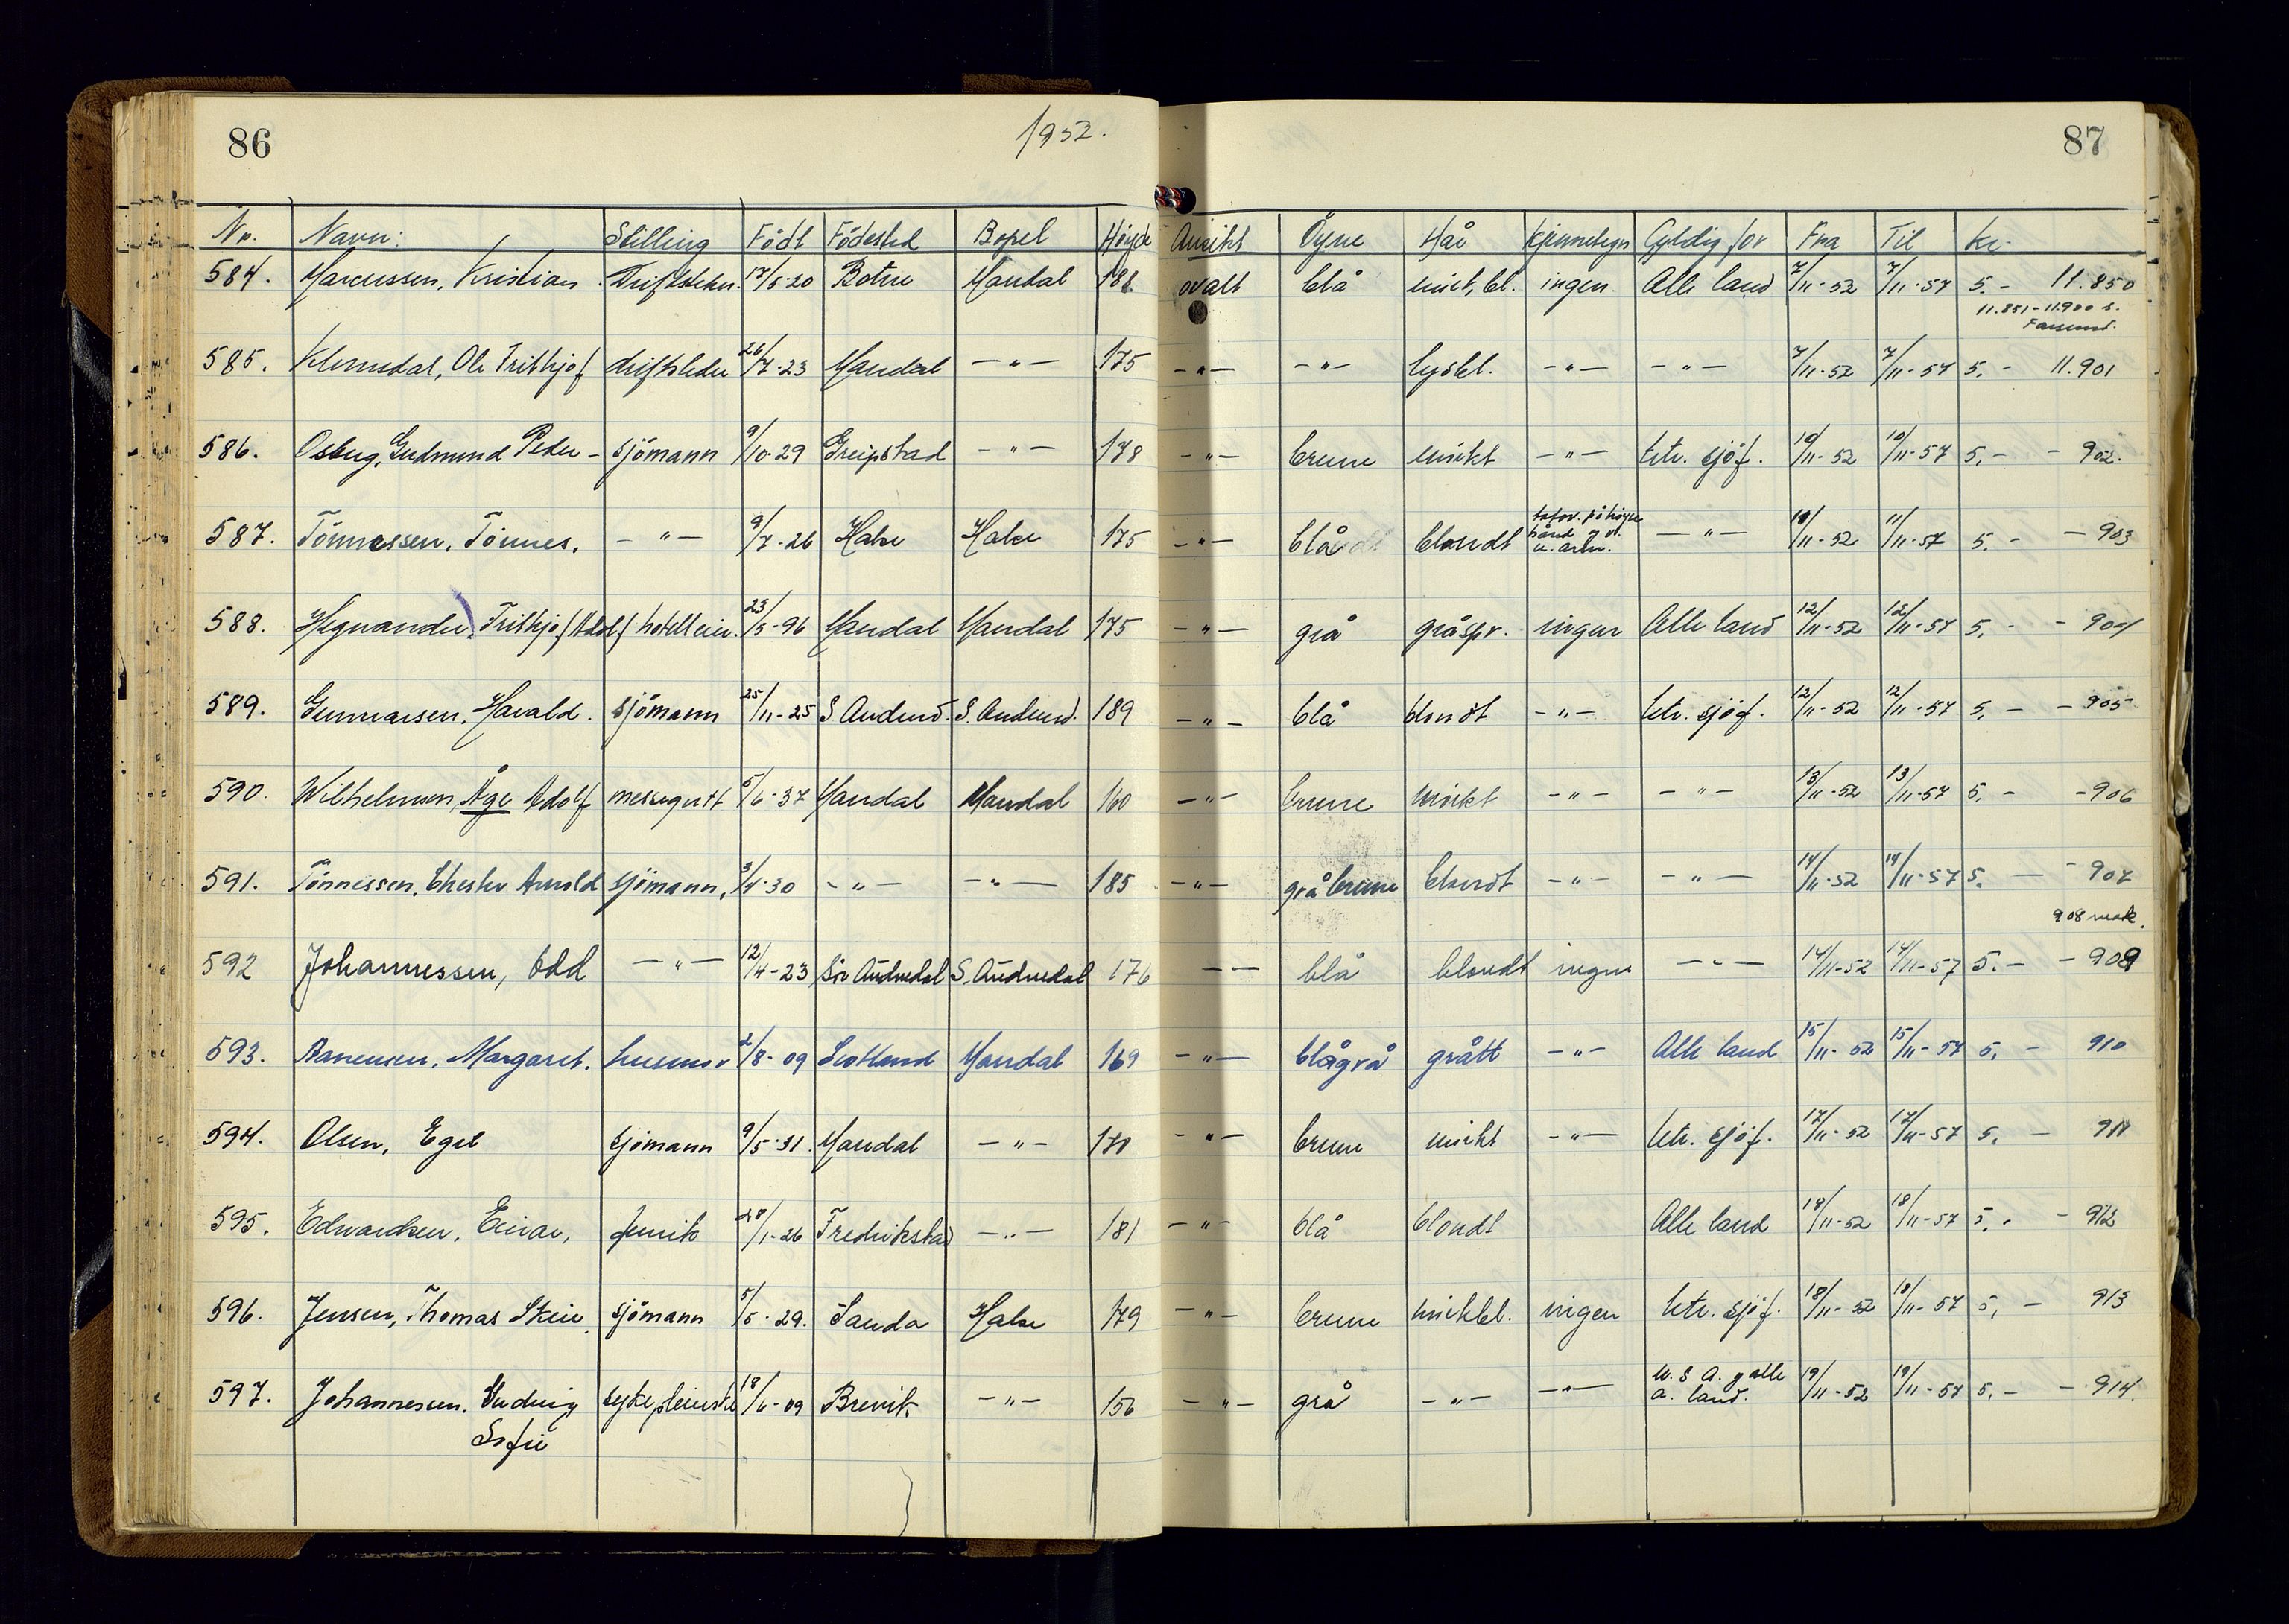 86
1952.
87
Nr. Navn: Stilling Födt Födested Bopel Höyde Ansikt Öyne Hår Kjennetegn Gyldig for Fra Til kr.
584. Marcussen, Kristian 17/5-20 Botne Mandal 188 ovalt blå mörk.bl. ingen Alle land 7/11-52 7/11-57 5.- 11.850
11.851-11.900 s.
Farsund.
585. Klemsdal, Ole Frithjof driftsleder 26/7-23 Mandal -"- 175 -"- -"- lysbl. -"- -"- 7/11-52 7/11-57 5.- 11.901
586. Gudmund Peder - sjömann 9/10-29 Greipstad -"- 178 -"- brune mörkt -"- utr. sjöf. 10/11-52 10/11-57 5.- - 902.
587. Tönnessen, Tönnes. -"- 9/7-26 Halse Halse 175 -"- blå blondt tatov. på höyre hånd og v. u.arm. -"- 11/11-52 11/11-57 5.- - 903
588. Frithjof Adolf hotelleier. 23/5-96 Mandal Mandal 175 -"- grå gråspr. ingen Alle land 12/11-52 12/11-57 5.- - 904
589. Gunnarsen, Harald. sjömann 25/11-25 S Audned. S. Audned. 189 -"- blå blondt -"- utr. sjöf. 12/11-52 12/11-57 5.- - 905
590. Wilhelmsen, Åge Adolf messegutt 5/6-37 Mandal Mandal 160 -"- brune mörkt -"- -"- 13/11-52 13/11-57 5.- - 906
591. Tönnessen, Chester Arnold sjömann, 3/4-30 -"- -"- 185 -"- grå brune blondt -"- -"- 14/11-52 14/11-57 5. - - 907
908 mak.
592 Johannessen, Odd -"- 12/4-23 Sör Audnedal S. Audnedal 176 -- blå blondt ingen -"- 14/11-52 14/11-57 5.- - 909
593. Aanensen, Margaret. husmor 2/8-09 Scotland Mandal 169 -"- blågrå grått -"- Alle land 15/11-52 15/11-57 5.- 910
594. Olsen, Egil sjömann 9/5-31. Mandal -"- 170 -"- brune mörkt -"- utr. sjöf. 17/11-52 17/11-57 5.- 911
595. Edwardsen, Einar, 28/1-26 Fredrikstad -"- 181 -"- blå blondt Alle land 18/11-52 18/11-57 5.- - 912
596. Jensen, Thomas Skeie, sjömann 5/5-29. Sauda Halse 179 -"- brune mörkbl. ingen utr. sjöf. 18/11-52 18/11-57 5,- 913
597. Johannessen. sykepleierske 18/6-09 Brevik -"- 156 -"- grå -"- -"- U.S A. og alle a. land. 19/11-52 19/11-57 5.- - 914.
Sofie